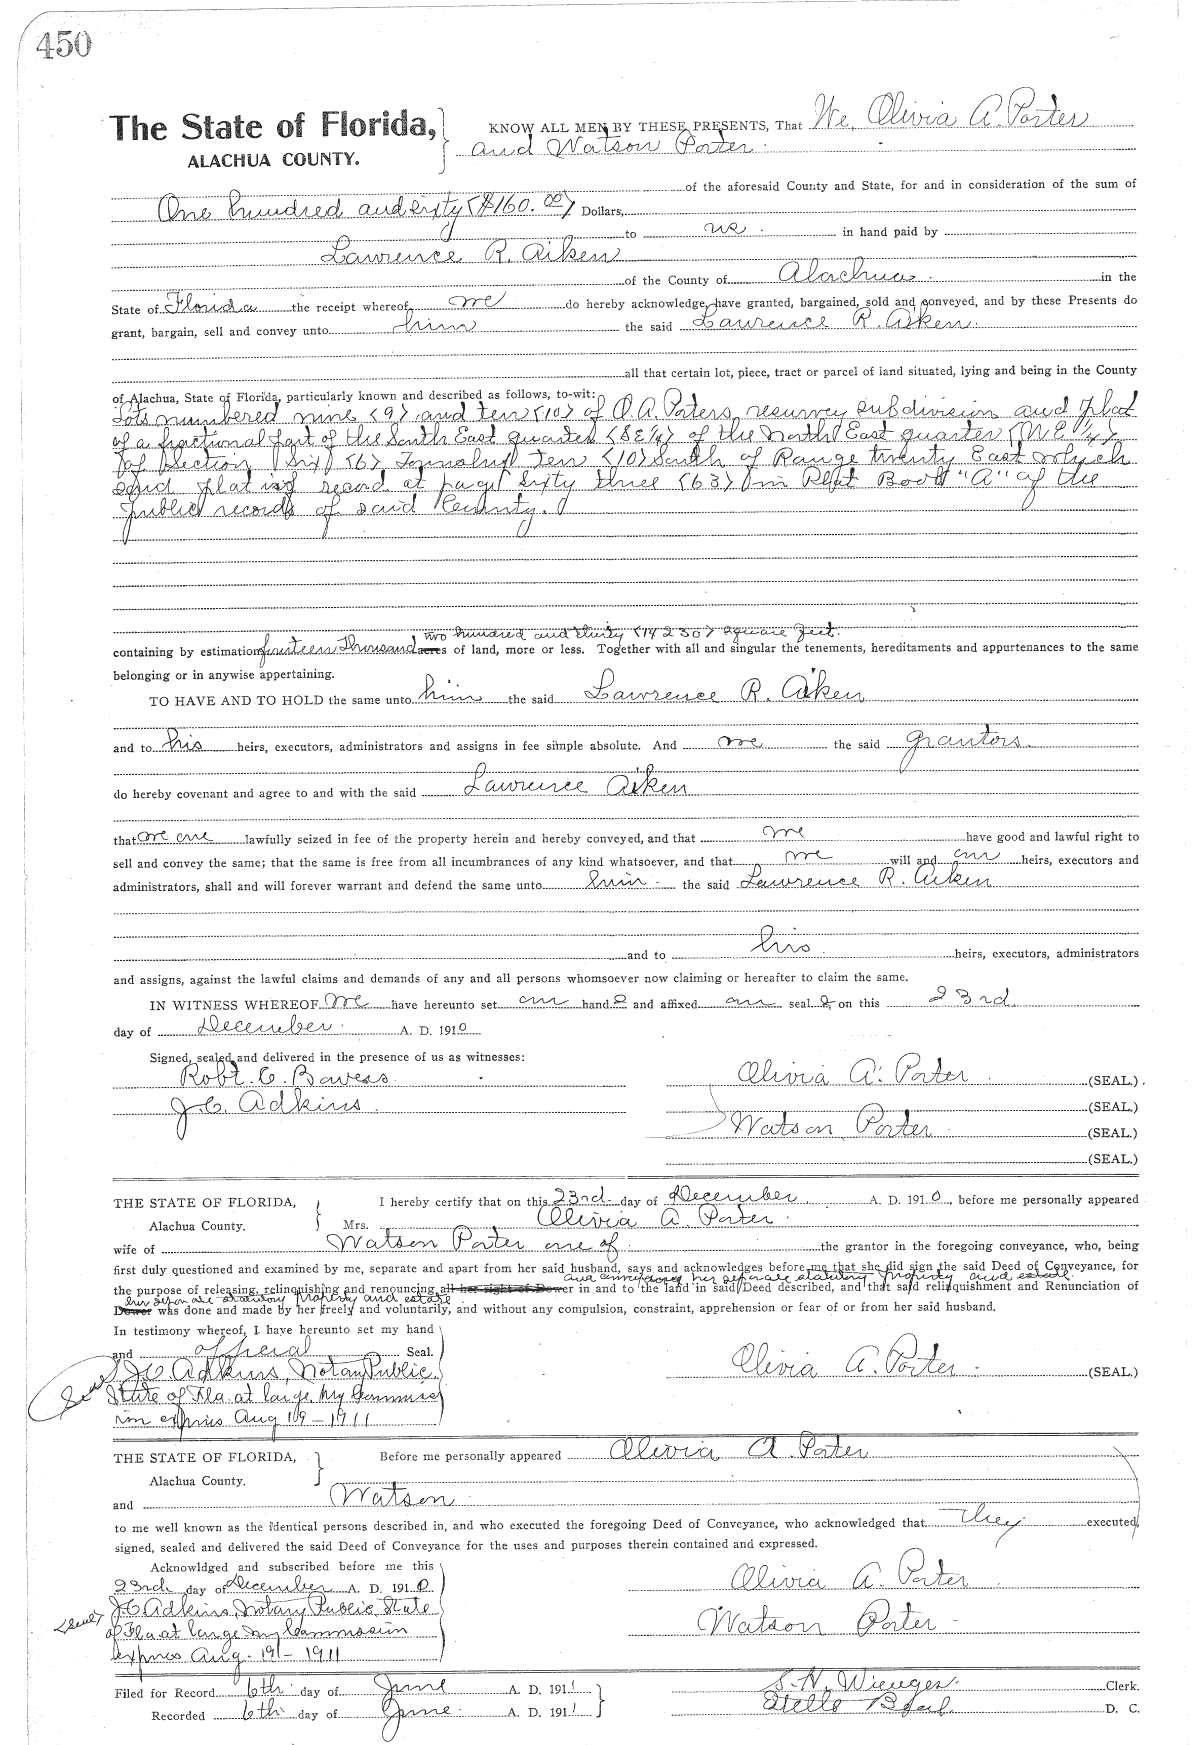 450
The State of Florida, KNOW ALL MEN BY THESE PRESENTS, That We, Olivia A. Porter
ALACHUA COUNTY. and Watson Porter
of the aforesaid County and State, for and in consideration of the sum of
One hundred and sixty ($160.00) Dollars,
to us in hand paid by
Lawrence R. Aiken
of the County of Alachua in the
State of Florida the receipt whereof we do hereby acknowledge, have granted, bargained, sold and conveyed, and by these Presents do
grant, bargain, sell and convey unto him the said Lawrence R. Aiken.
all that certain lot, piece, tract or parcel of land situated, lying and being in the County
of Alachua, State of Florida, particularly known and described as follows, to-wit:
Lots numbered nine (9) and ten (10) of O. A. Porters resurvey subdivision and plat
of a fractional part of the South East quarter (SE 1/4) of the North East quarter (NE 1/4)
of Section Six (6) Township ten (10) South of Range twenty East which
said plat is of record at page sixty three (63) in Plat Book "A" of the
public records of said County.
two hundred and thirty (14230) square feet.
containing by estimation fourteen Thousand acres of land, more or less. Together with all and singular the tenements, hereditaments and appurtenances to the same
belonging or in anywise appertaining.
TO HAVE AND TO HOLD the same unto him the said Lawrence R. Aiken
and to his heirs, executors, administrators and assigns in fee simple absolute. And we the said grantors.
do hereby covenant and agree to and with the said Lawrence Aiken
that we are lawfully seized in fee of the property herein and hereby conveyed, and that we have good and lawful right to
sell and convey the same; that the same is free from all incumbrances of any kind whatsoever, and that we will and our heirs, executors and
administrators, shall and will forever warrant and defend the same unto him the said Lawrence R. Aiken
and to his heirs, executors, administrators
and assigns, against the lawful claims and demands of any and all persons whomsoever now claiming or hereafter to claim the same.
IN WITNESS WHEREOF We have hereunto set our hand s and affixed our seal s on this 23rd
day of December A. D. 1910
Signed, sealed and delivered in the presence of us as witnesses:
Robt. C. Olivia A. Porter (SEAL.)
J. C. Adkins. (SEAL.)
Watson Porter (SEAL.)
(SEAL.)
THE STATE OF FLORIDA, I hereby certify that on this 23rd day of December A. D. 1910, before me personally appeared
Alachua County. Mrs. Olivia A. Porter
wife of Watson Porter one of the grantor in the foregoing conveyance, who, being
first duly questioned and examined by me, separate and apart from her said husband, says and acknowledges before me that she did sign the said Deed of Conveyance, for
and conveying her separate statutory property and estate
the purpose of releasing, relinquishing and renouncing all her right of Dower in and to the land in said Deed described, and that said relinquishment and Renunciation of
her separate statutory property and estate
Dower was done and made by her freely and voluntarily, and without any compulsion, constraint, apprehension or fear of or from her said husband.
In testimony whereof, I have hereunto set my hand
and official Seal. Olivia A. Porter (SEAL)
Seal J. C. Adkins, Notary Public
State of Fla. at large. My Commiss
ion expires Aug 19 - 1911
THE STATE OF FLORIDA, Before me personally appeared Olivia A. Porter
Alachua County.
and Watson
to me well known as the identical persons described in, and who executed the foregoing Deed of Conveyance, who acknowledged that They executed,
signed, sealed and delivered the said Deed of Conveyance for the uses and purposes therein contained and expressed.
Acknowldged and subscribed before me this
23rd day of December A. D. 1910. Olivia A. Porter
Seal J. C. Adkins, Notary Public, State
of Fla at large My Commission Watson Porter
expires Aug. 19 - 1911
Filed for Record 6th day of June A. D. 1911 S. H. Wienges. Clerk.
Recorded 6th day of June A. D. 1911 D. C.